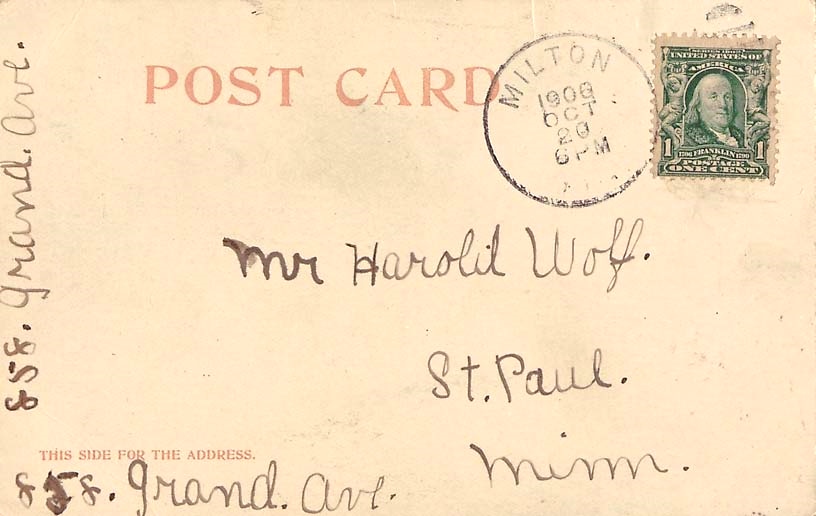 POST CARD
MILTON
1908
OCT
20
6 PM
SERIES 1902
UNITED STATES OF
AMERICA
1706 FRANKLIN 1790
1 POSTAGE 1
ONE CENT
Mr Harold Wolf.
St. Paul.
Minn.
THIS SIDE FOR THE ADDRESS.
858. Grand. Ave.
858. Grand. Ave.